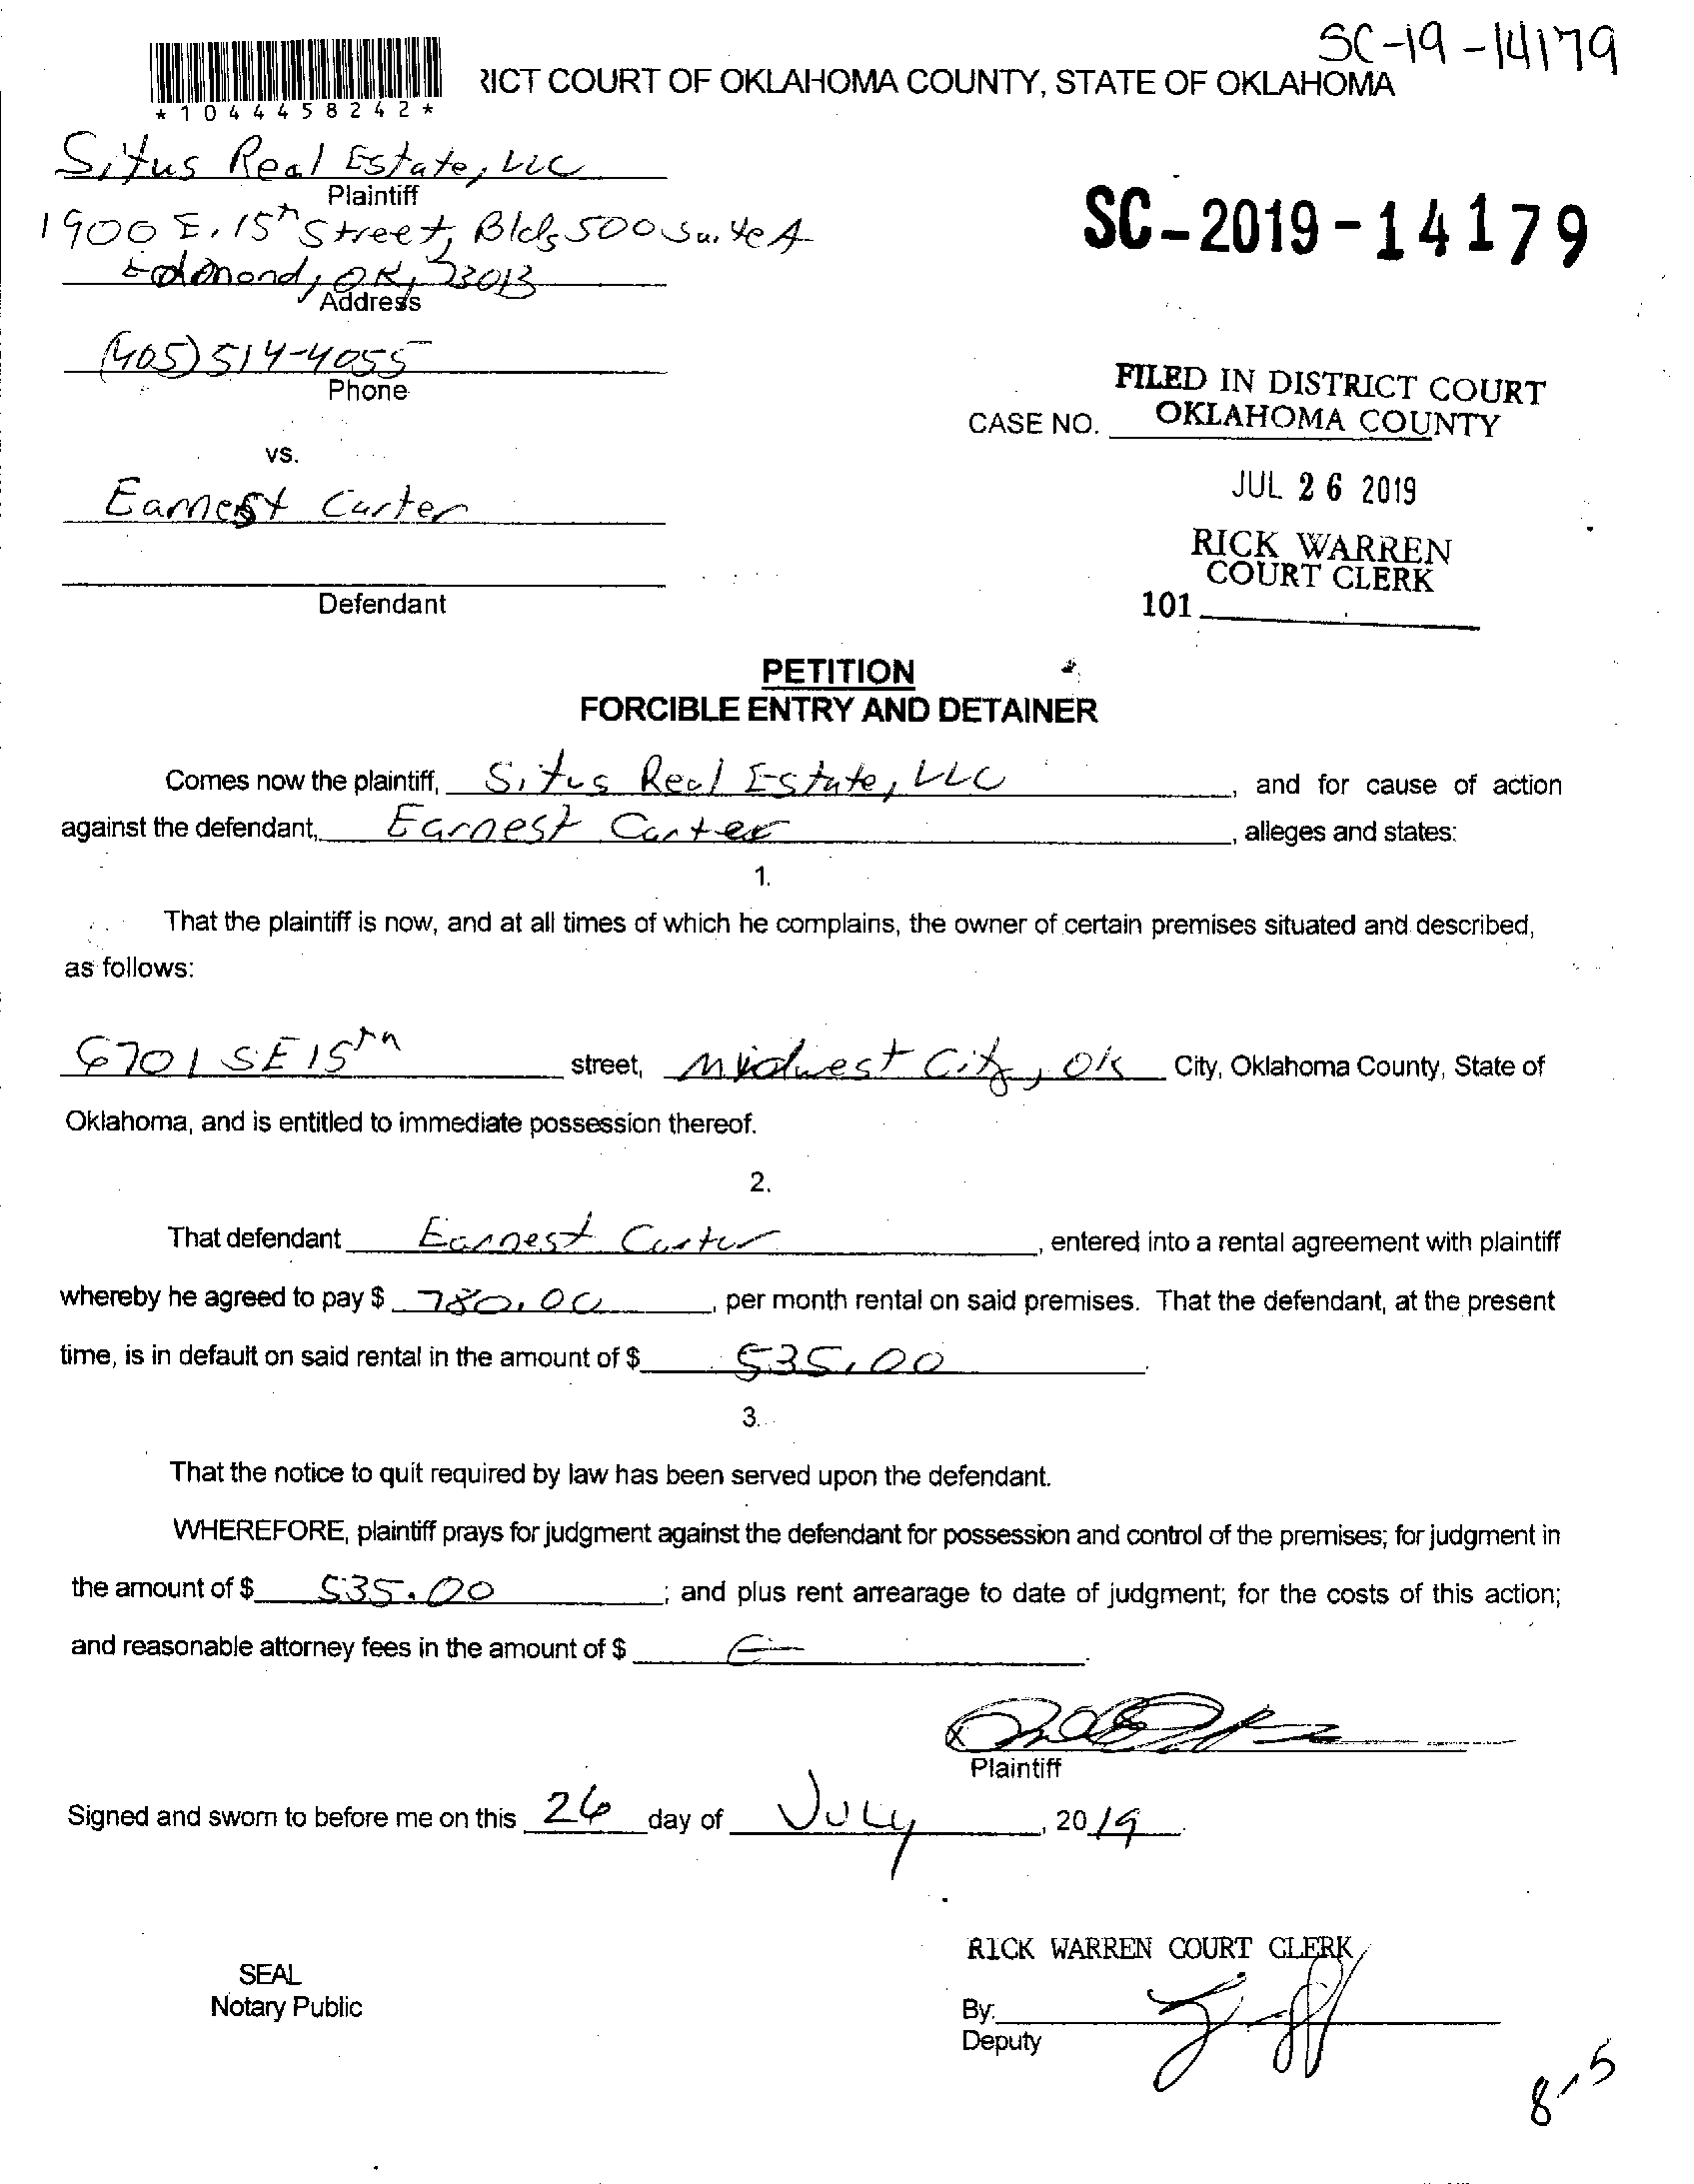 SC-19-14179
RICT COURT OF OKLAHOMA COUNTY, STATE OF OKLAHOMA
*1044458242*
Situs Real Estate, LLC
Plaintiff
1900 E. 15th Street, Bldg 500 Suite A
SC-2019-14179
Edmond, OK, 73013
Address
(405) 514-4055
Phone
FILED IN DISTRICT COURT
CASE NO. OKLAHOMA COUNTY
vs.
JUL 26 2019
Earnest Carter
RICK WARREN
COURT CLERK
Defendant
101
PETITION
FORCIBLE ENTRY AND DETAINER
Comes now the plaintiff, Situs Real Estate, LLC, and for cause of action
against the defendant, Earnest Carter, alleges and states:
1.
That the plaintiff is now, and at all times of which he complains, the owner of certain premises situated and described,
as follows:
6701 SE 15th street, Midwest City, OK City, Oklahoma County, State of
Oklahoma, and is entitled to immediate possession thereof.
2.
That defendant Earnest Carter, entered into a rental agreement with plaintiff
whereby he agreed to pay $ 780.00, per month rental on said premises. That the defendant, at the present
time, is in default on said rental in the amount of $ 535.00.
3.
That the notice to quit required by law has been served upon the defendant.
WHEREFORE, plaintiff prays for judgment against the defendant for possession and control of the premises; for judgment in
the amount of $ 535.00; and plus rent arrearage to date of judgment; for the costs of this action;
and reasonable attorney fees in the amount of $
Plaintiff
Signed and sworn to before me on this 26 day of July, 2019.
RICK WARREN COURT CLERK
SEAL
Notary Public
By:
Deputy
8-5